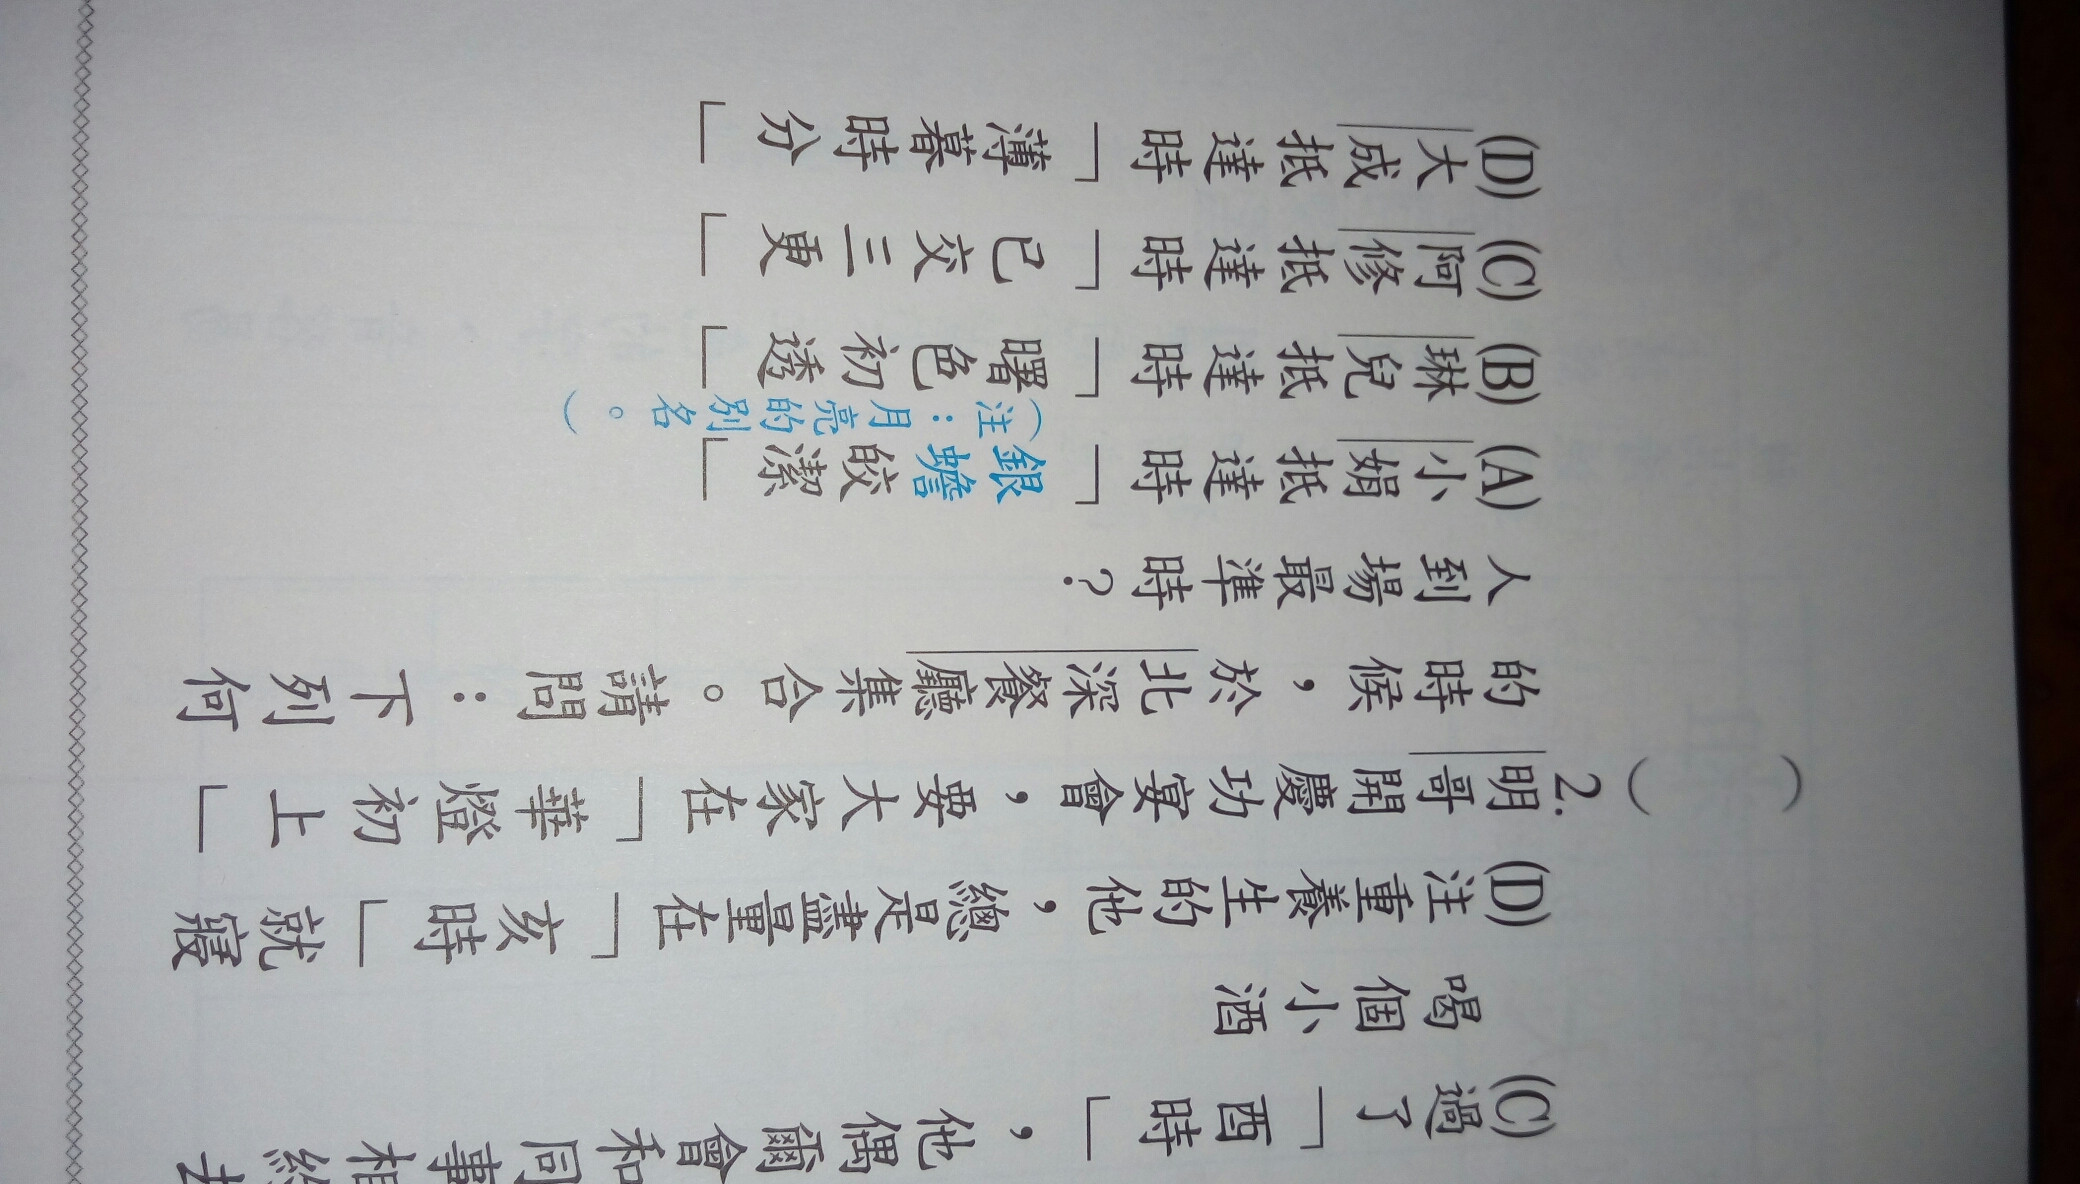 (C)過了「酉時」，他偶爾會和同事相
喝個小酒
(D)注重養生的他，總是盡量在「亥時」就寢
（　）2.明哥開慶功宴會，要大家在「華燈初上」
的時候，於北深餐廳集合。請問：下列何
人到場最準時？
(A)小娟抵達時「銀蟾皎潔」
（注：月亮的別名。）
(B)琳兒抵達時「曙色初透」
(C)阿修抵達時「已交三更」
(D)大成抵達時「薄暮時分」